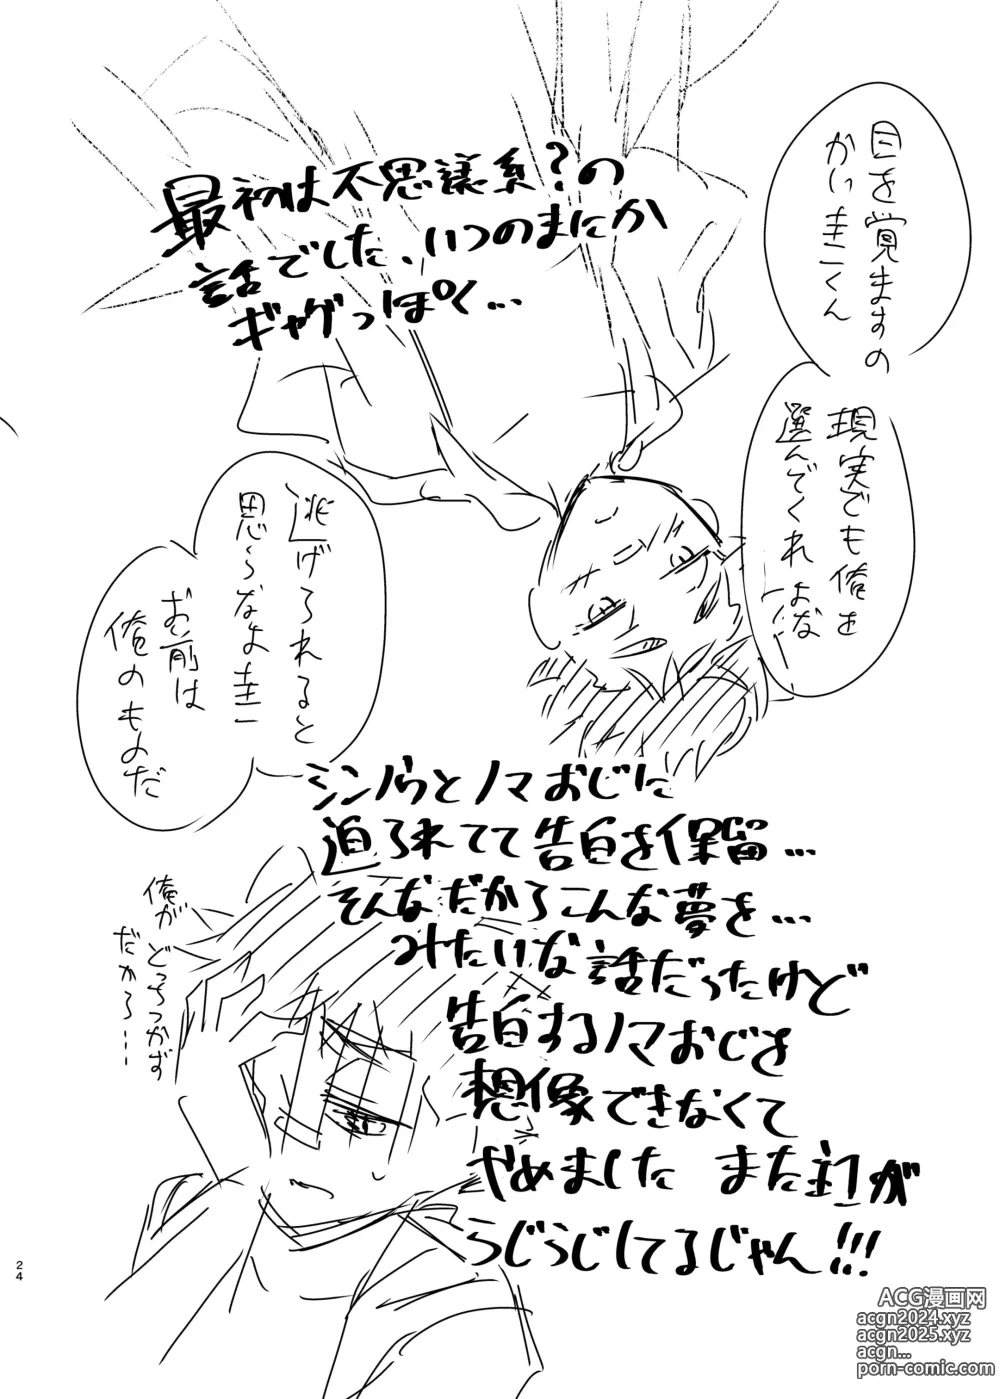 目を覚ますの
かい圭くん
現実でも俺を
選んでくれよな
最初は不思議系?の
話でした、いつのまにか
ギャグっぽく…
逃げられると
思うなよ圭
お前は
俺のものだ
シンノウとノマおじに
迫られてて告白を保留…
そんなだからこんな夢を…
みたいな話だったけど
告白するノマおじを
想像できなくて
やめました また主1が
うじうじしてるじゃん!!!
俺が
どっちつかず
だから…
24
ACG漫画网
acgn2024.xyz
acgn2025.xyz
acgn...
porn-comic.com